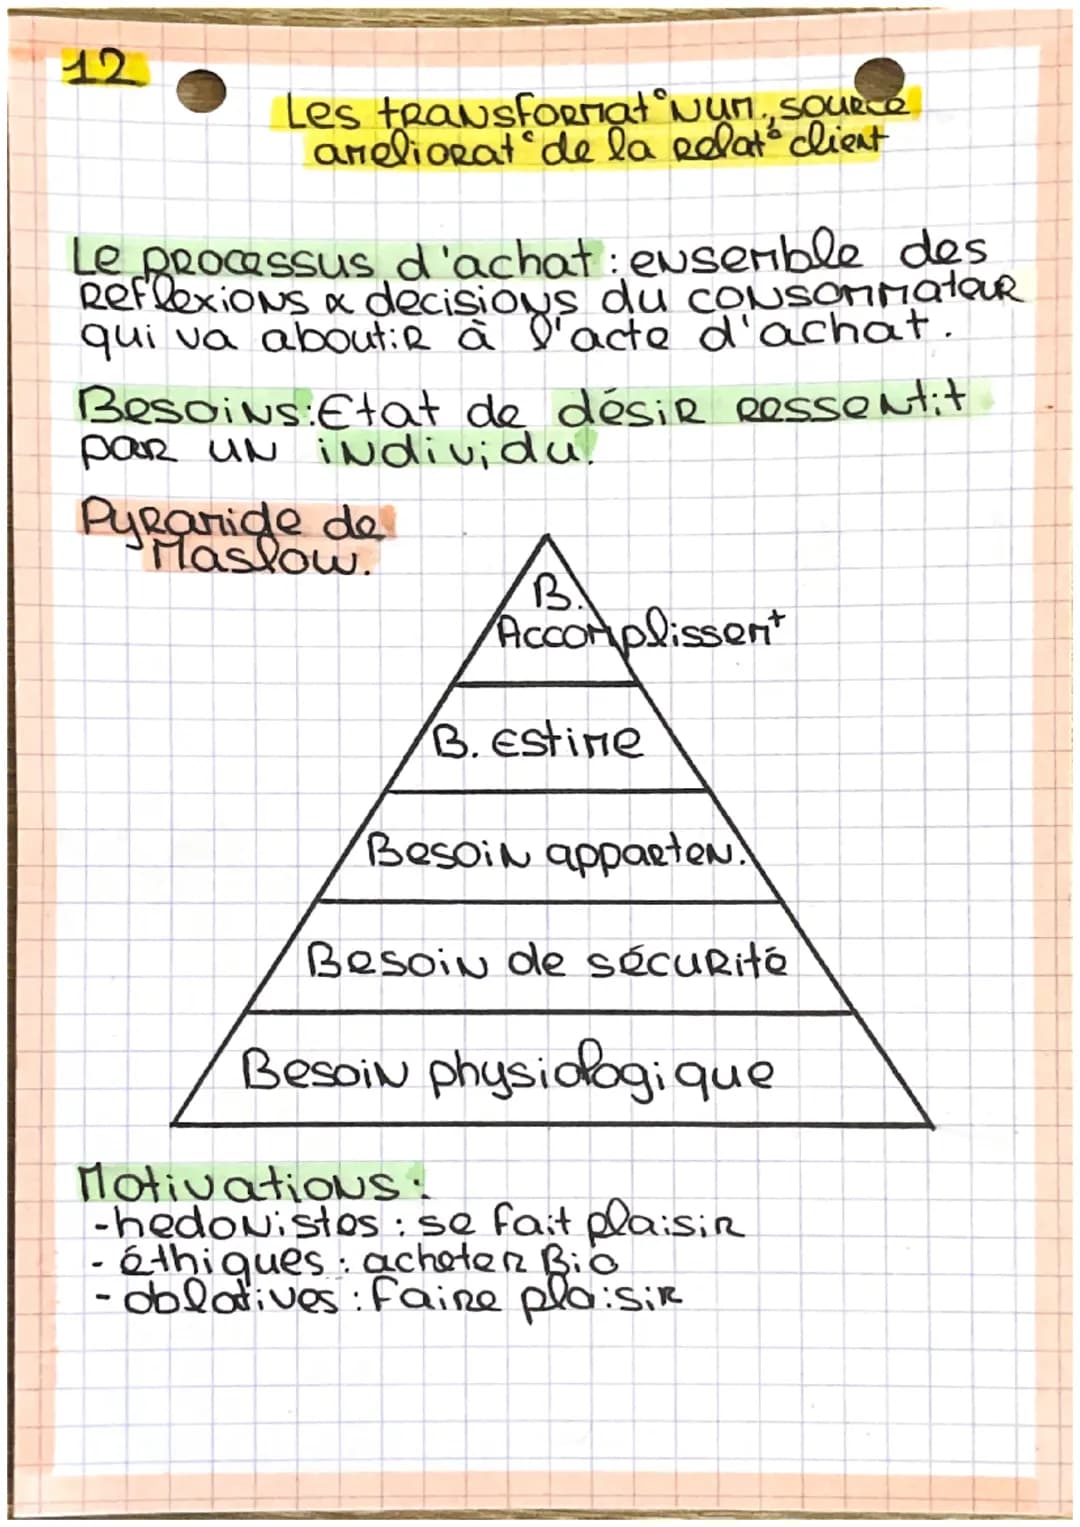 12
Les transformat° Num., source
ameliorat° de la relat° client
Le processus d'achat : ensemble des
reflexions & decisions du consommateur
qui va aboutir à l'acte d'achat.
Besoins : Etat de désir ressentit
par un individu.
Pyramide de
Maslow.
B.
Accomplissemt
B. Estime
Besoin apparten.
Besoin de sécurité
Besoin physiologique
Motivations :
- hedonistes : se fait plaisir
- éthiques : acheter Bio
- oblatives : faire plaisir